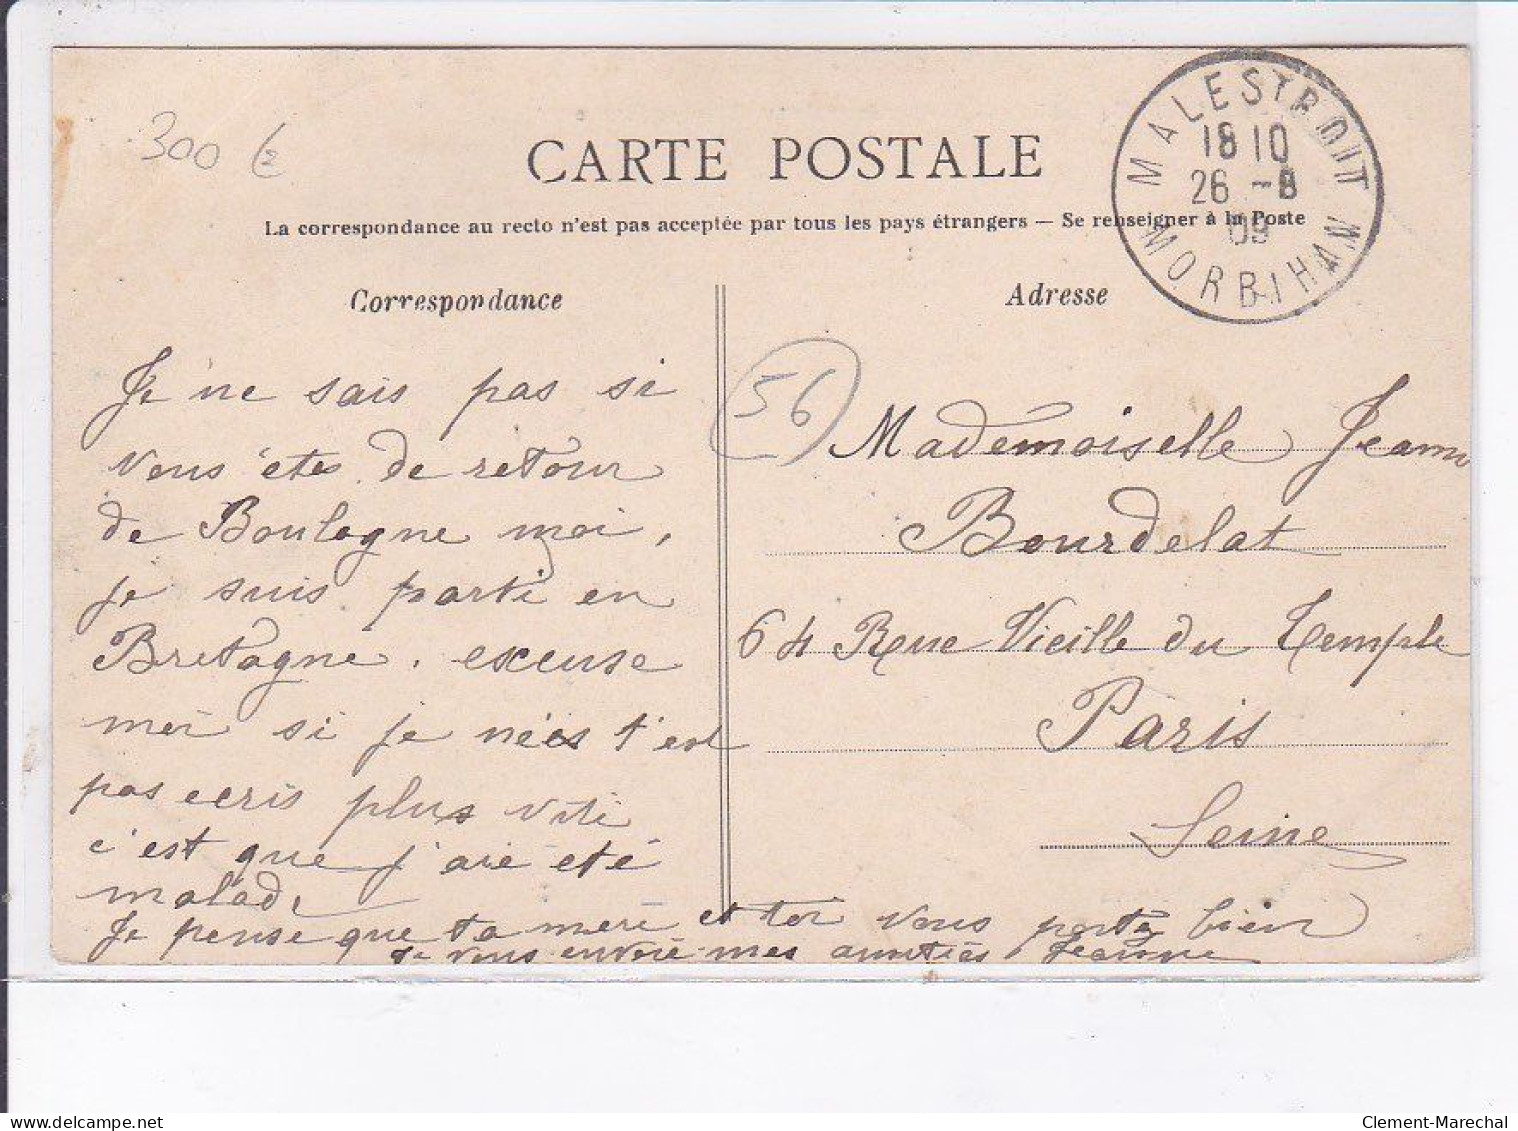 300 €
CARTE POSTALE
La correspondance au recto n'est pas acceptée par tous les pays étrangers — Se renseigner à la Poste
MALESTROIT
18 10
26 -8
09
MORBIHAN
Correspondance
Je ne sais pas si
vous êtes de retour
de Boulogne moi,
je suis parti en
Bretagne. excuse
moi si je t'est
pas ecris plus vite
c'est que j'aie été
malade
Je pense que ta mère et toi vous portez bien
Je vous envoie mes amitiés Jeanne
Adresse
56
Mademoiselle Jeanne
Bourdelat
64 Rue Vieille du Temple
Paris
Seine
Clement-Marechal